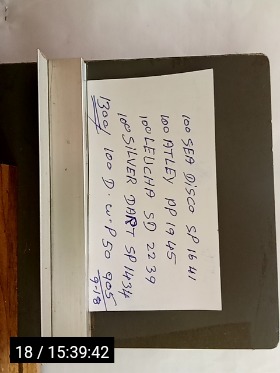 100 SEA DISCO SP 16 41
100 ATLEY PP 19 45
100 LEUCHA SD 22 39
100 SILVER DART SP 14 34
1300/ 100 D.W.P 50 905
9-18
18 / 15:39:42